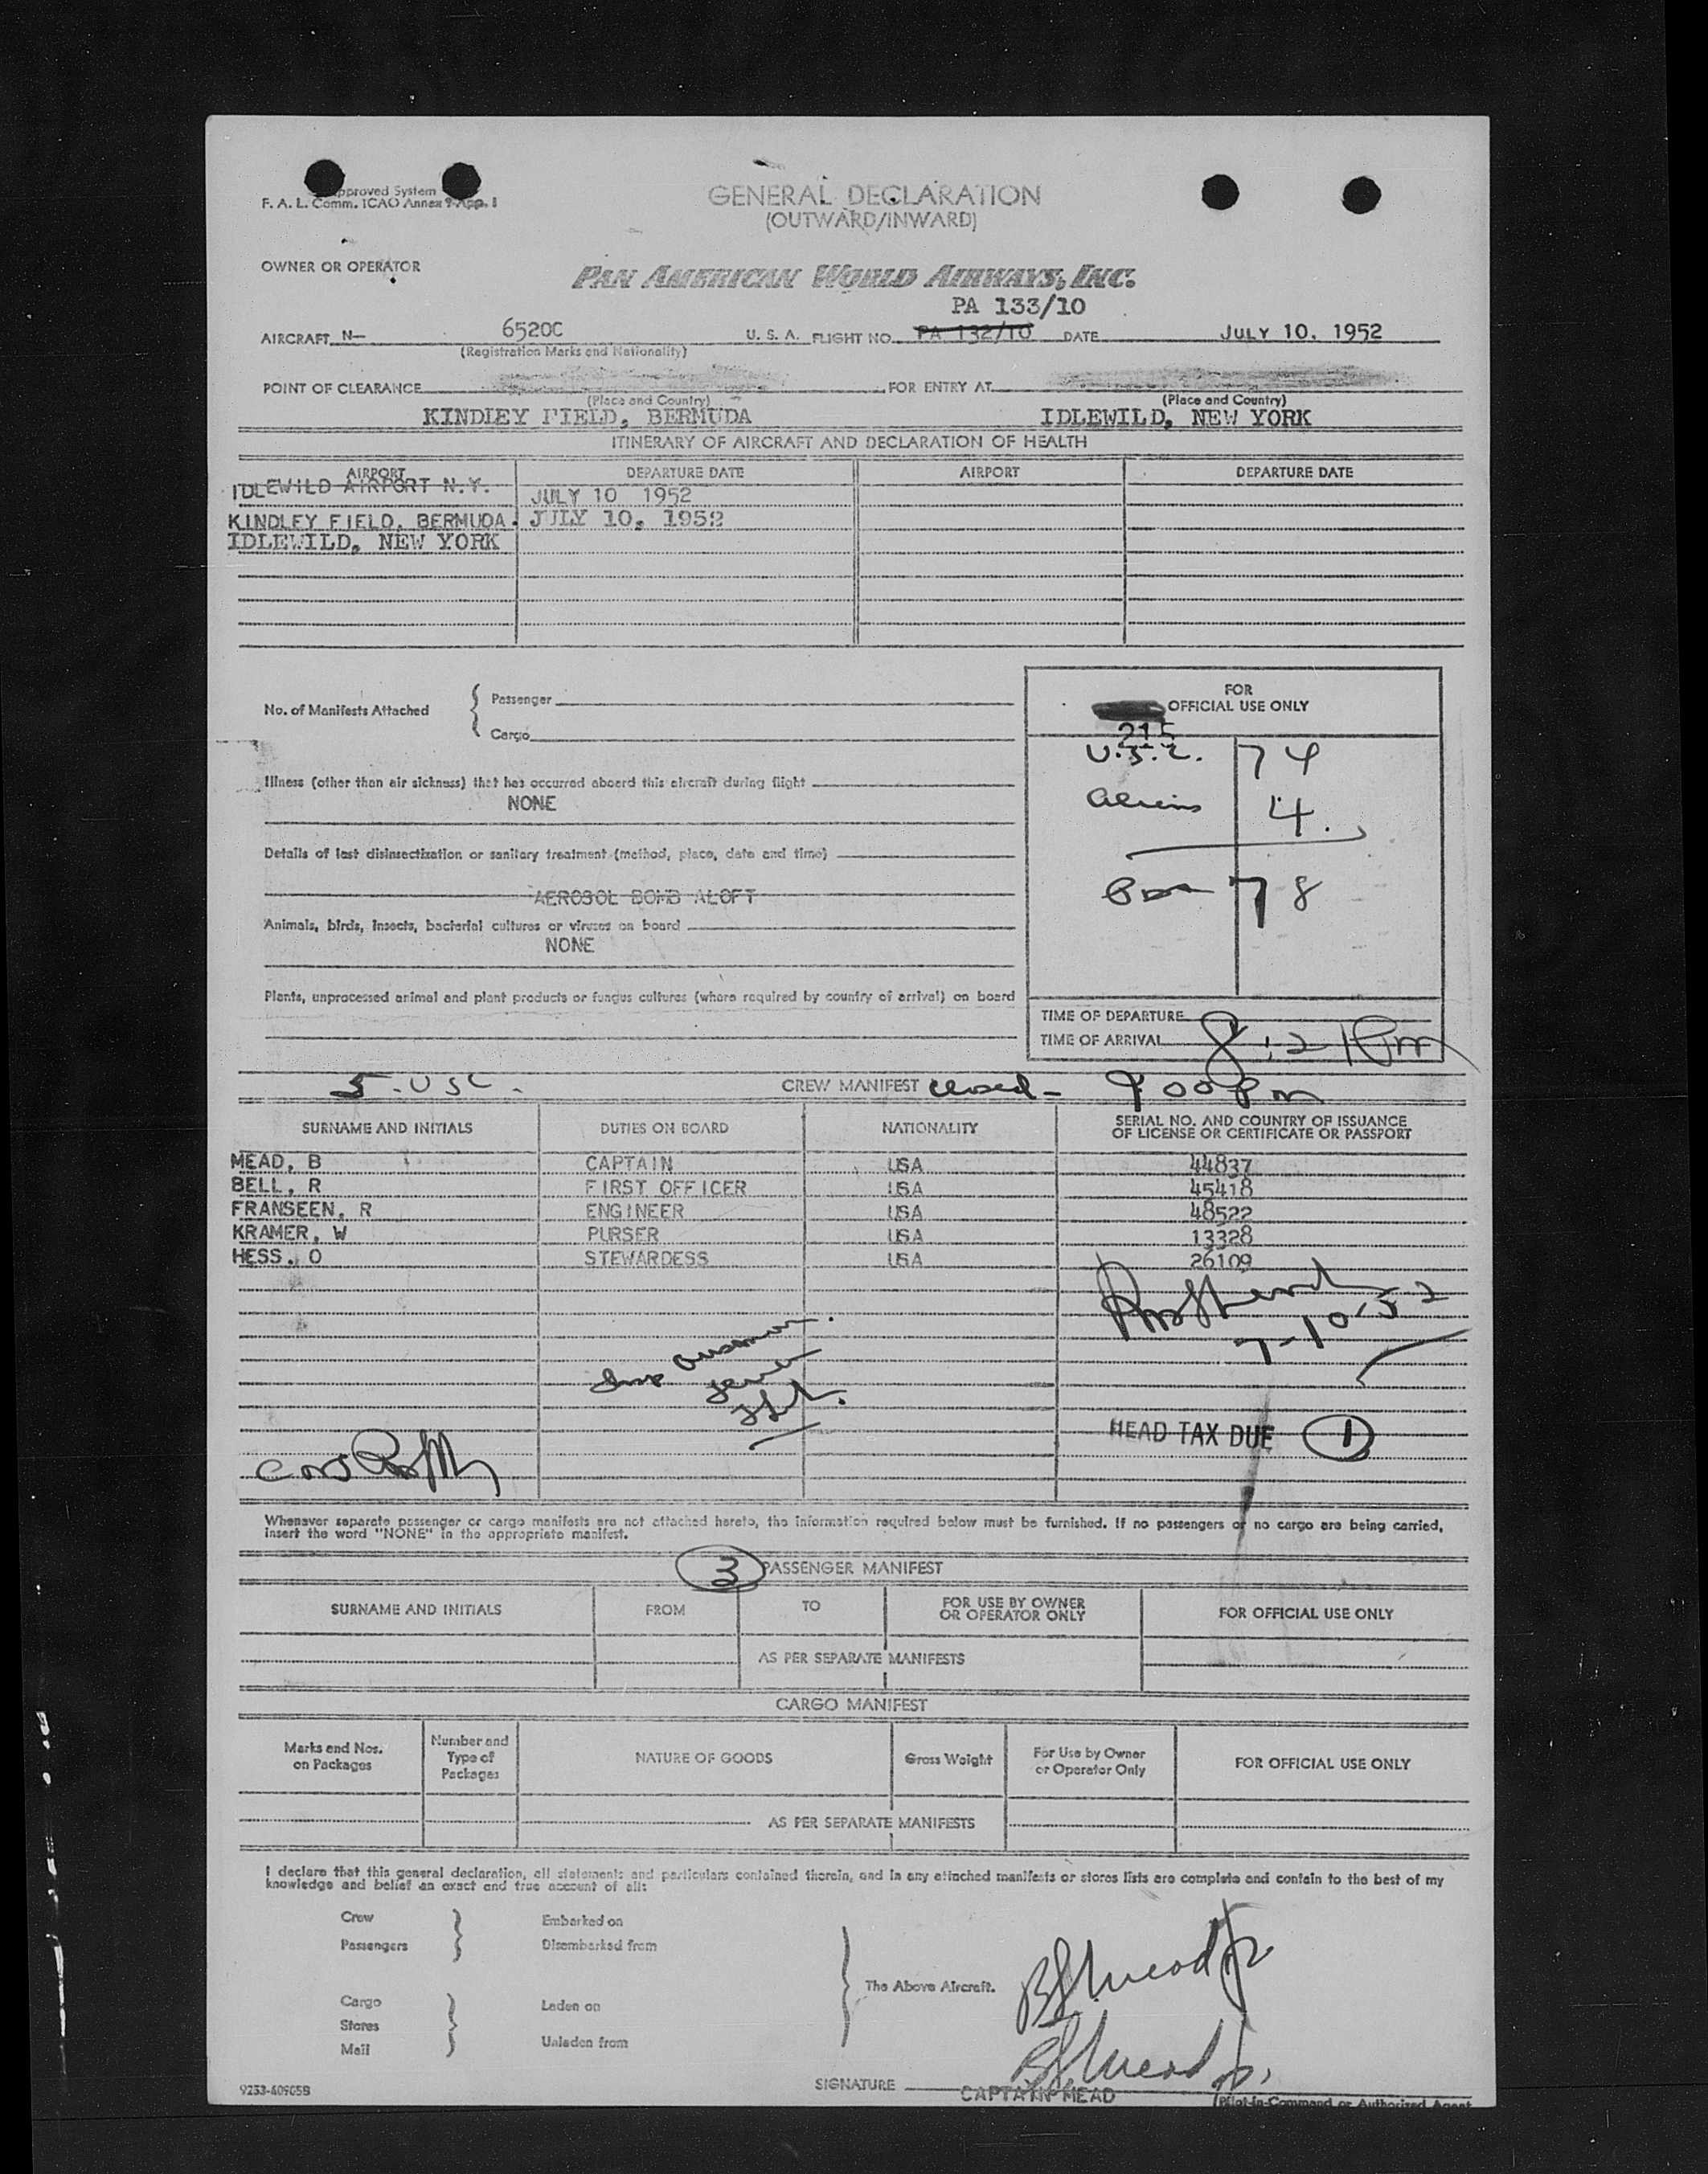 Approved System
F. A. L. Comm. ICAO Annex 9-App. 1
GENERAL DECLARATION
(OUTWARD/INWARD)
OWNER OR OPERATOR
PAN AMERICAN WORLD AIRWAYS, INC.
PA 133/10
AIRCRAFT N- 6520C U. S. A. FLIGHT NO. PA 132/10 DATE JULY 10, 1952
(Registration Marks and Nationality)
POINT OF CLEARANCE FOR ENTRY AT
(Place and Country) (Place and Country)
KINDLEY FIELD, BERMUDA IDLEWILD, NEW YORK
ITINERARY OF AIRCRAFT AND DECLARATION OF HEALTH
AIRPORT DEPARTURE DATE AIRPORT DEPARTURE DATE
IDLEWILD AIRPORT N.Y. JULY 10 1952
KINDLEY FIELD, BERMUDA. JULY 10, 1952
IDLEWILD, NEW YORK
No. of Manifests Attached
Passenger
Cargo
FOR
OFFICIAL USE ONLY
215
U.S.C. 74
aliens 4.
78
Illness (other than air sickness) that has occurred aboard this aircraft during flight
NONE
Details of last disinsectization or sanitary treatment (method, place, date and time)
AEROSOL BOMB ALOFT
Animals, birds, insects, bacterial cultures or viruses on board
NONE
Plants, unprocessed animal and plant products or fungus cultures (where required by country of arrival) on board
TIME OF DEPARTURE
TIME OF ARRIVAL 8:21 Pm
5-USC. CREW MANIFEST closed - 9:00 Pm
SURNAME AND INITIALS DUTIES ON BOARD NATIONALITY SERIAL NO. AND COUNTRY OF ISSUANCE
OF LICENSE OR CERTIFICATE OR PASSPORT
MEAD, B CAPTAIN USA 44837
BELL, R FIRST OFFICER USA 45418
FRANSEEN, R ENGINEER USA 48522
KRAMER, W PURSER USA 13328
HESS, O STEWARDESS USA 26109
7-10-52
HEAD TAX DUE 1
Whenever separate passenger or cargo manifests are not attached hereto, the information required below must be furnished. If no passengers or no cargo are being carried,
insert the word "NONE" in the appropriate manifest.
3 PASSENGER MANIFEST
SURNAME AND INITIALS FROM TO FOR USE BY OWNER
OR OPERATOR ONLY FOR OFFICIAL USE ONLY
AS PER SEPARATE MANIFESTS
CARGO MANIFEST
Marks and Nos.
on Packages
Number and
Type of
Packages
NATURE OF GOODS
Gross Weight
For Use by Owner
or Operator Only
FOR OFFICIAL USE ONLY
AS PER SEPARATE MANIFESTS
I declare that this general declaration, all statements and particulars contained therein, and in any attached manifests or stores lists are complete and contain to the best of my
knowledge and belief an exact and true account of all:
Crew
Passengers
Embarked on
Disembarked from
The Above Aircraft.
Cargo
Stores
Mail
Laden on
Unladen from
B J Mead Jr
B J Mead Jr.
SIGNATURE CAPTAIN MEAD
(Pilot-in-Command or Authorized Agent
9233-40905B